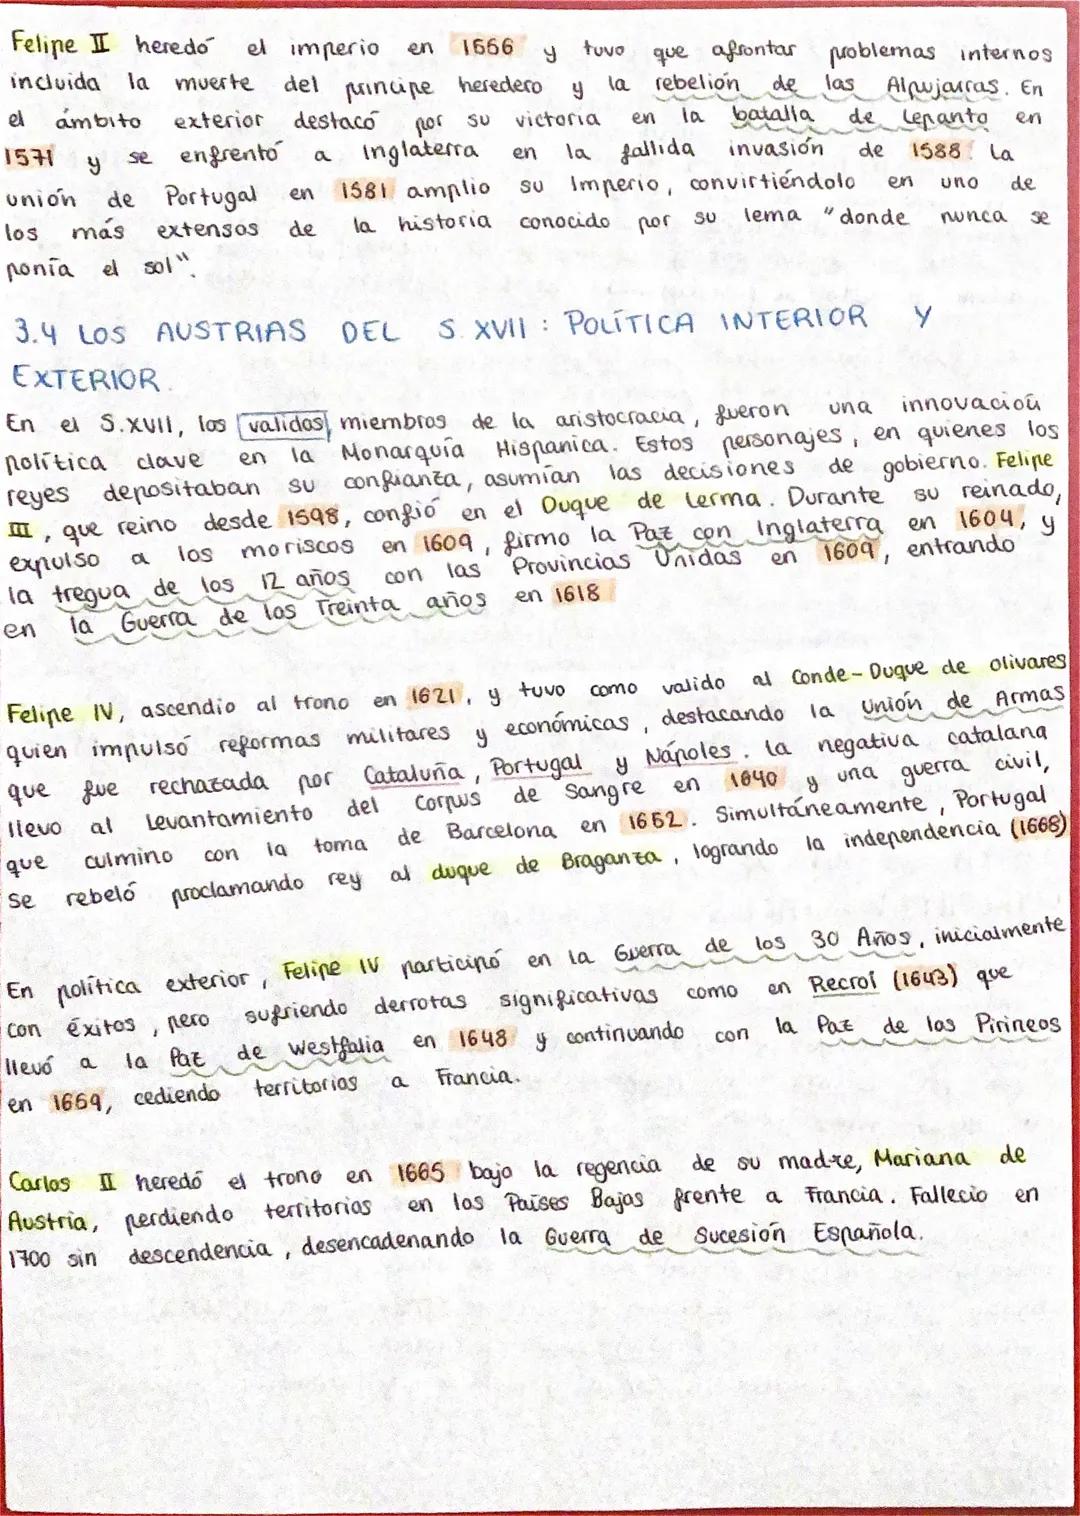 Felipe II heredó el imperio en 1556 y tuvo que afrontar problemas internos
incluida la muerte del principe heredero y la rebelión de las Alpujarras. En
el ámbito exterior destacó por su victoria en la batalla de Lepanto en
1571 y se enfrentó a Inglaterra en la fallida invasión de 1588. La
unión de Portugal en 1581 amplio su Imperio, convirtiéndolo en uno de
los más extensos de la historia conocido por su lema "donde nunca se
ponía el sol".
3.4 LOS AUSTRIAS DEL S.XVII: POLÍTICA INTERIOR Y
EXTERIOR.
En el S.XVII, los validos, miembros de la aristocracia, fueron una innovación
política clave en la Monarquía Hispanica. Estos personajes, en quienes los
reyes depositaban su confianza, asumían las decisiones de gobierno. Felipe
III, que reino desde 1598, confió en el Duque de Lerma. Durante su reinado,
expulso a los moriscos en 1609, firmo la Paz con Inglaterra en 1604, y
la tregua de los 12 años con las Provincias Unidas en 1609, entrando
en la Guerra de los Treinta años en 1618
Felipe IV, ascendio al trono en 1621, y tuvo como valido al Conde-Duque de Olivares
quien impulsó reformas militares y económicas, destacando la Unión de Armas
que fue rechazada por Cataluña, Portugal y Nápoles. La negativa catalana
llevo al Levantamiento del Corpus de Sangre en 1640 y una guerra civil,
que culmino con la toma de Barcelona en 1652. Simultáneamente, Portugal
se rebeló proclamando rey al duque de Braganza, logrando la independencia (1668)
En política exterior, Felipe IV participó en la Guerra de los 30 Años, inicialmente
con éxitos, pero sufriendo derrotas significativas como en Recroi (1643) que
llevó a la Paz de Westfalia en 1648 y continuando con la Paz de los Pirineos
en 1659, cediendo territorios a Francia.
Carlos II heredó el trono en 1665 bajo la regencia de su madre, Mariana de
Austria, perdiendo territorios en los Países Bajos frente a Francia. Fallecio en
1700 sin descendencia, desencadenando la Guerra de Sucesión Española.